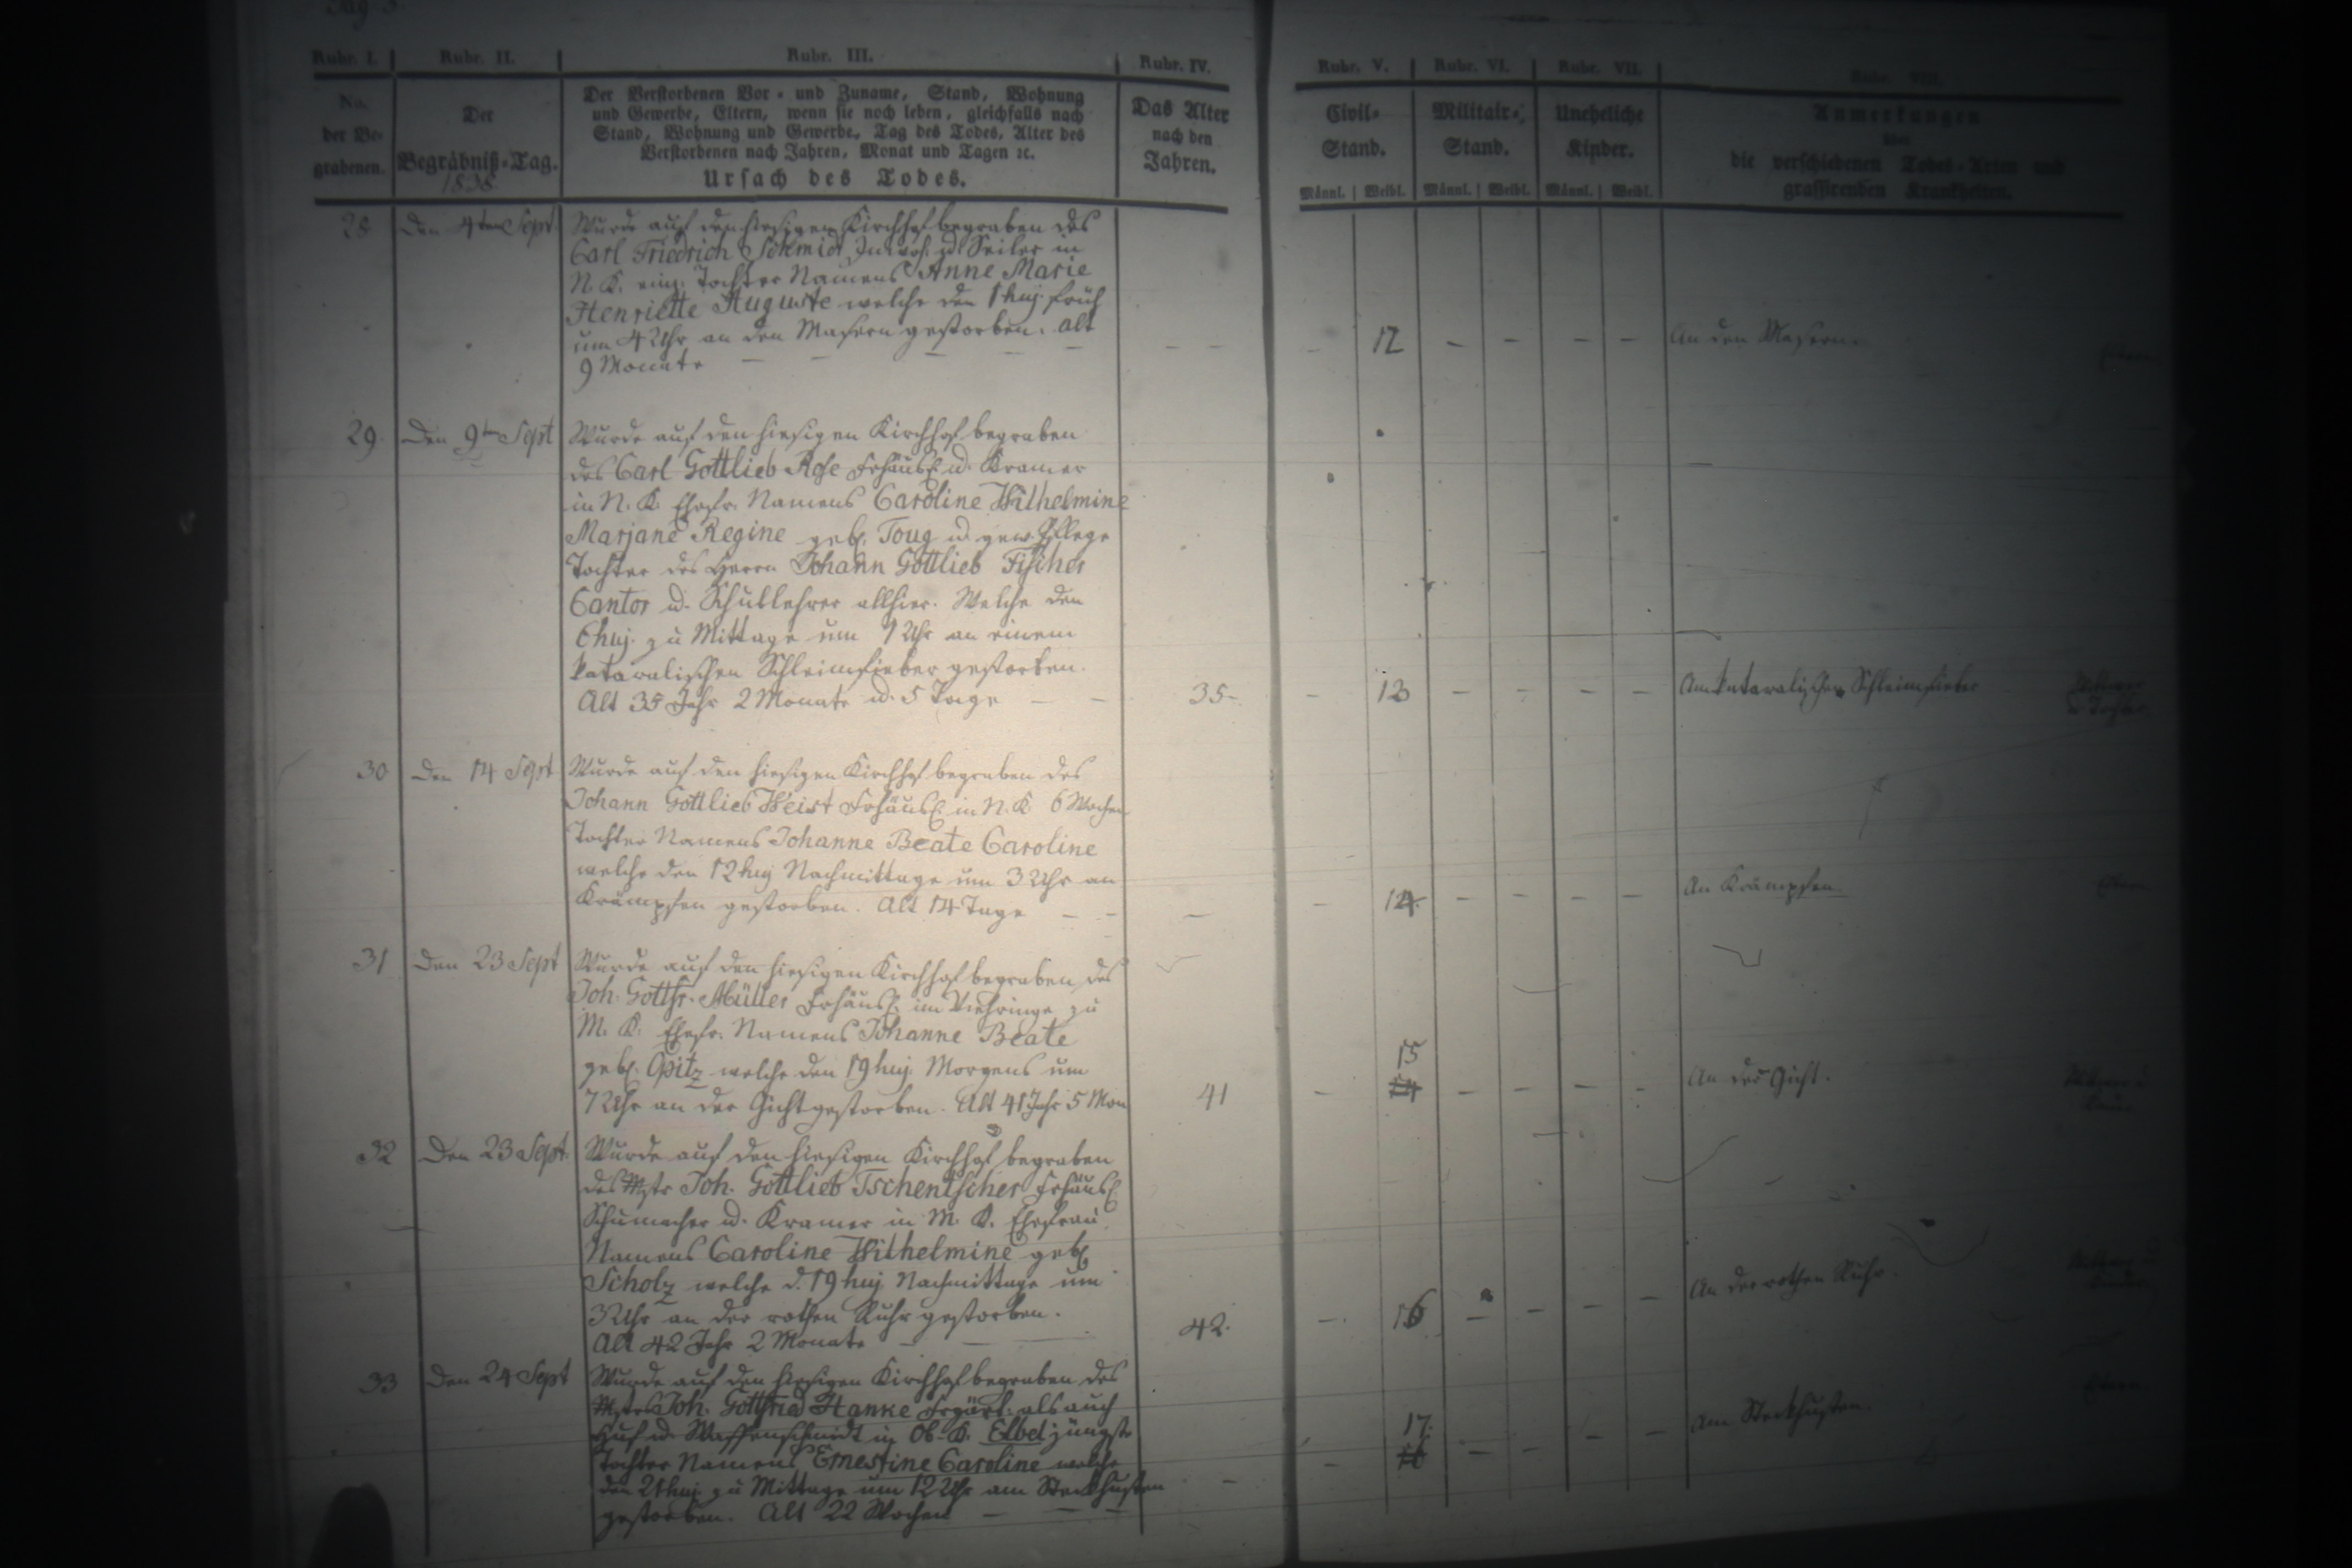 Pag. 3.
Rubr. I. Rubr. II. Rubr. III. Rubr. IV. Rubr. V. Rubr. VI. Rubr. VII. Rubr. VIII.
No. der Be-grabenen.
Der Begräbniß-Tag.
1838.
Der Verstorbenen Vor- und Zuname, Stand, Wohnung
und Gewerbe, Eltern, wenn sie noch leben, gleichfalls nach
Stand, Wohnung und Gewerbe, Tag des Todes, Alter des
Verstorbenen nach Jahren, Monat und Tagen ꝛc.
Ursach des Todes.
Das Alter
nach den
Jahren.
Civil-
Stand.
Männl. Weibl.
Militair-
Stand.
Männl. Weibl.
Uneheliche
Kinder.
Männl. Weibl.
Anmerkungen
über
die verschiedenen Todes-Arten und
grassirenden Krankheiten.
28 Den 4ten Sept. Wurde auf den hiesigen Kirchhof begraben des
Carl Friedrich Schmidt Inwoh. u. Seiler in
N. K. einz. Tochter Namens Anne Marie
Henriette Auguste welche den 1 huj. früh
um 4 Uhr an den Masern gestorben. Alt
9 Monate — — — — — — — — — 12 — — — — An den Masern.
29. Den 9ten Sept Wurde auf den hiesigen Kirchhof begraben
des Carl Gottlieb Rose Frhäusl. u. Kramer
in N. K. Ehefr. Namens Caroline Wilhelmine
Marjane Regine geb. Toug u. gew. Pflege
Tochter des Herrn Johann Gottlieb Fischer
Cantor u. Schullehrer allhier. Welche den
6 huj. zu Mittage um 1 Uhr an einem
kataralischen Schleimfieber gestorben.
Alt 35 Jahr 2 Monate u. 5 Tage — — 35 — 13 — — — — Am kataralischen Schleimfieber
30 Den 14 Sept Wurde auf den hiesigen Kirchhof begraben des
Johann Gottlieb Weist Frhäusl. in N. K. 6 Wochen
Tochter Namens Johanne Beate Caroline
welche den 12 huj Nachmittage um 3 Uhr an
Krämpfen gestorben. Alt 14 Tage — — — — 14. — — — — An Krämpfen
31 Den 23 Sept Wurde auf den hiesigen Kirchhof begraben des
Joh. Gottfr. Müller Frhäusl. im Viehringe zu
M. K. Ehefr. Namens Johanne Beate
geb. Opitz welche den 19 huj. Morgens um 15
7 Uhr an der Gicht gestorben. Alt 41 Jahr 5 Mon 41 — 14 — — — — An der Gicht.
32 Den 23 Sept. Wurde auf den hiesigen Kirchhof begraben
des Mstr Joh. Gottlieb Tschentscher Frhäusl.
Schumacher u. Kramer in M. K. Ehefrau
Namens Caroline Wilhelmine geb.
Scholz welche d. 19 huj Nachmittage um
3 Uhr an der rothen Ruhr gestorben.
Alt 42 Jahr 2 Monate — — 42. — 16 — — — — An der rothen Ruhr.
33 Den 24 Sept Wurde auf den hiesigen Kirchhof begraben des
Mstrs Joh. Gottfried Hanke Frgärt. als auch
Huf u. Waffenschmidt in Ob. K. Elbel jüngste 17.
Tochter Namens Ernestine Caroline welche
den 21 huj zu Mittage um 12 Uhr am Steckhusten — — — — — — Am Steckhusten.
gestorben. Alt 22 Wochen — — —